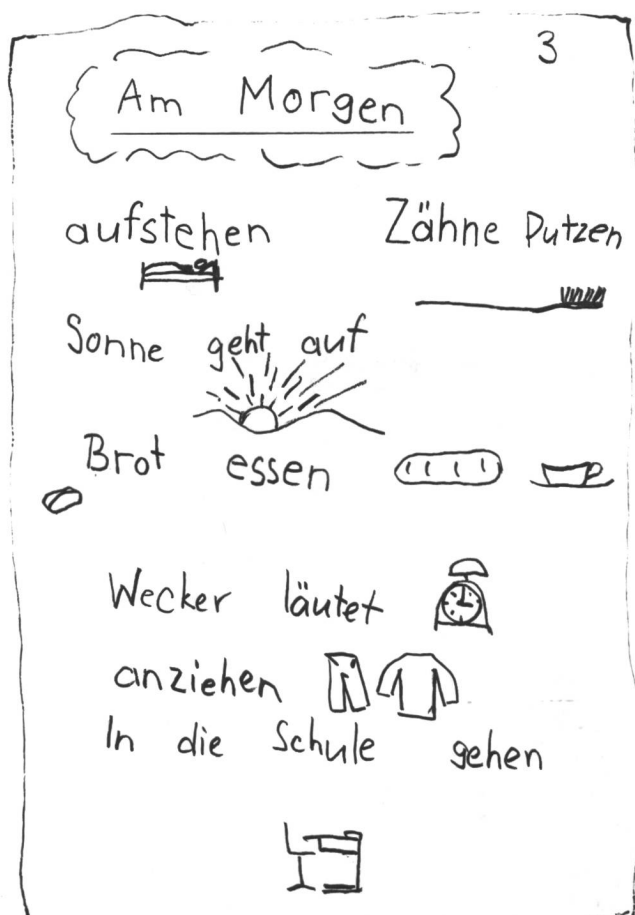 3
Am Morgen
aufstehen Zähne Putzen
Sonne geht auf
Brot essen
Wecker läutet
anziehen
In die Schule gehen